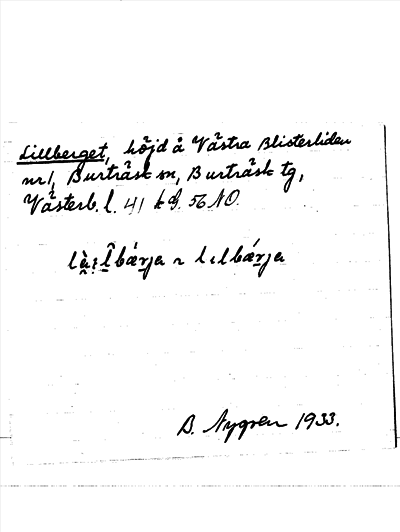 Lillberget, höjd å Västra Blisterliden
nr 1, Burträsk sn, Burträsk tg,
Västerb. l. 41 k G. 56 NO.
lılbǽrja
B. Nygren 1933.